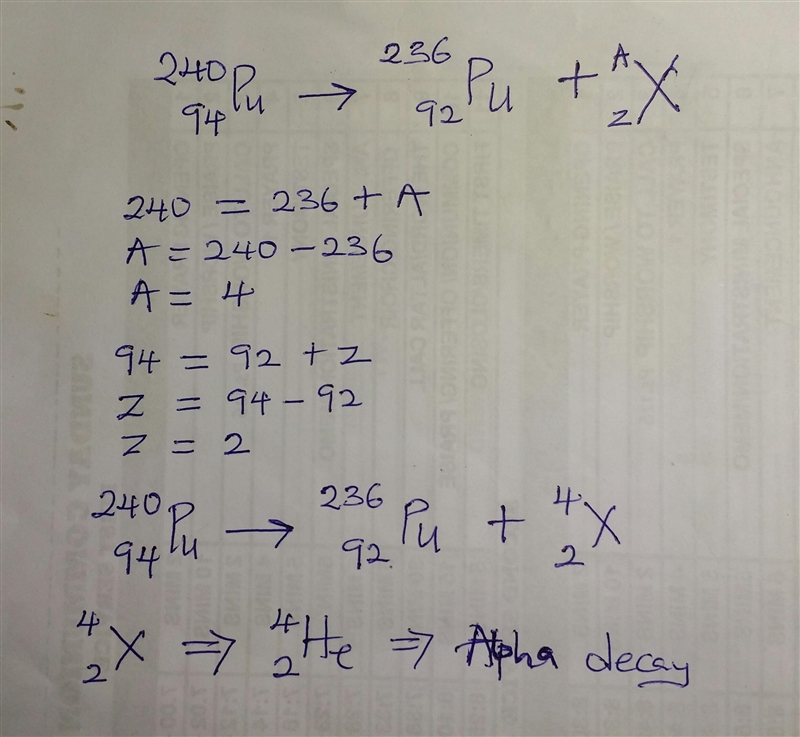 ²⁴⁰₉₄Pu → ²³⁶₉₂Pu + ᴬ_ZX
240 = 236 + A
A = 240 - 236
A = 4
94 = 92 + Z
Z = 94 - 92
Z = 2
²⁴⁰₉₄Pu → ²³⁶₉₂Pu + ⁴₂X
⁴₂X ⇒ ⁴₂He ⇒ Alpha decay